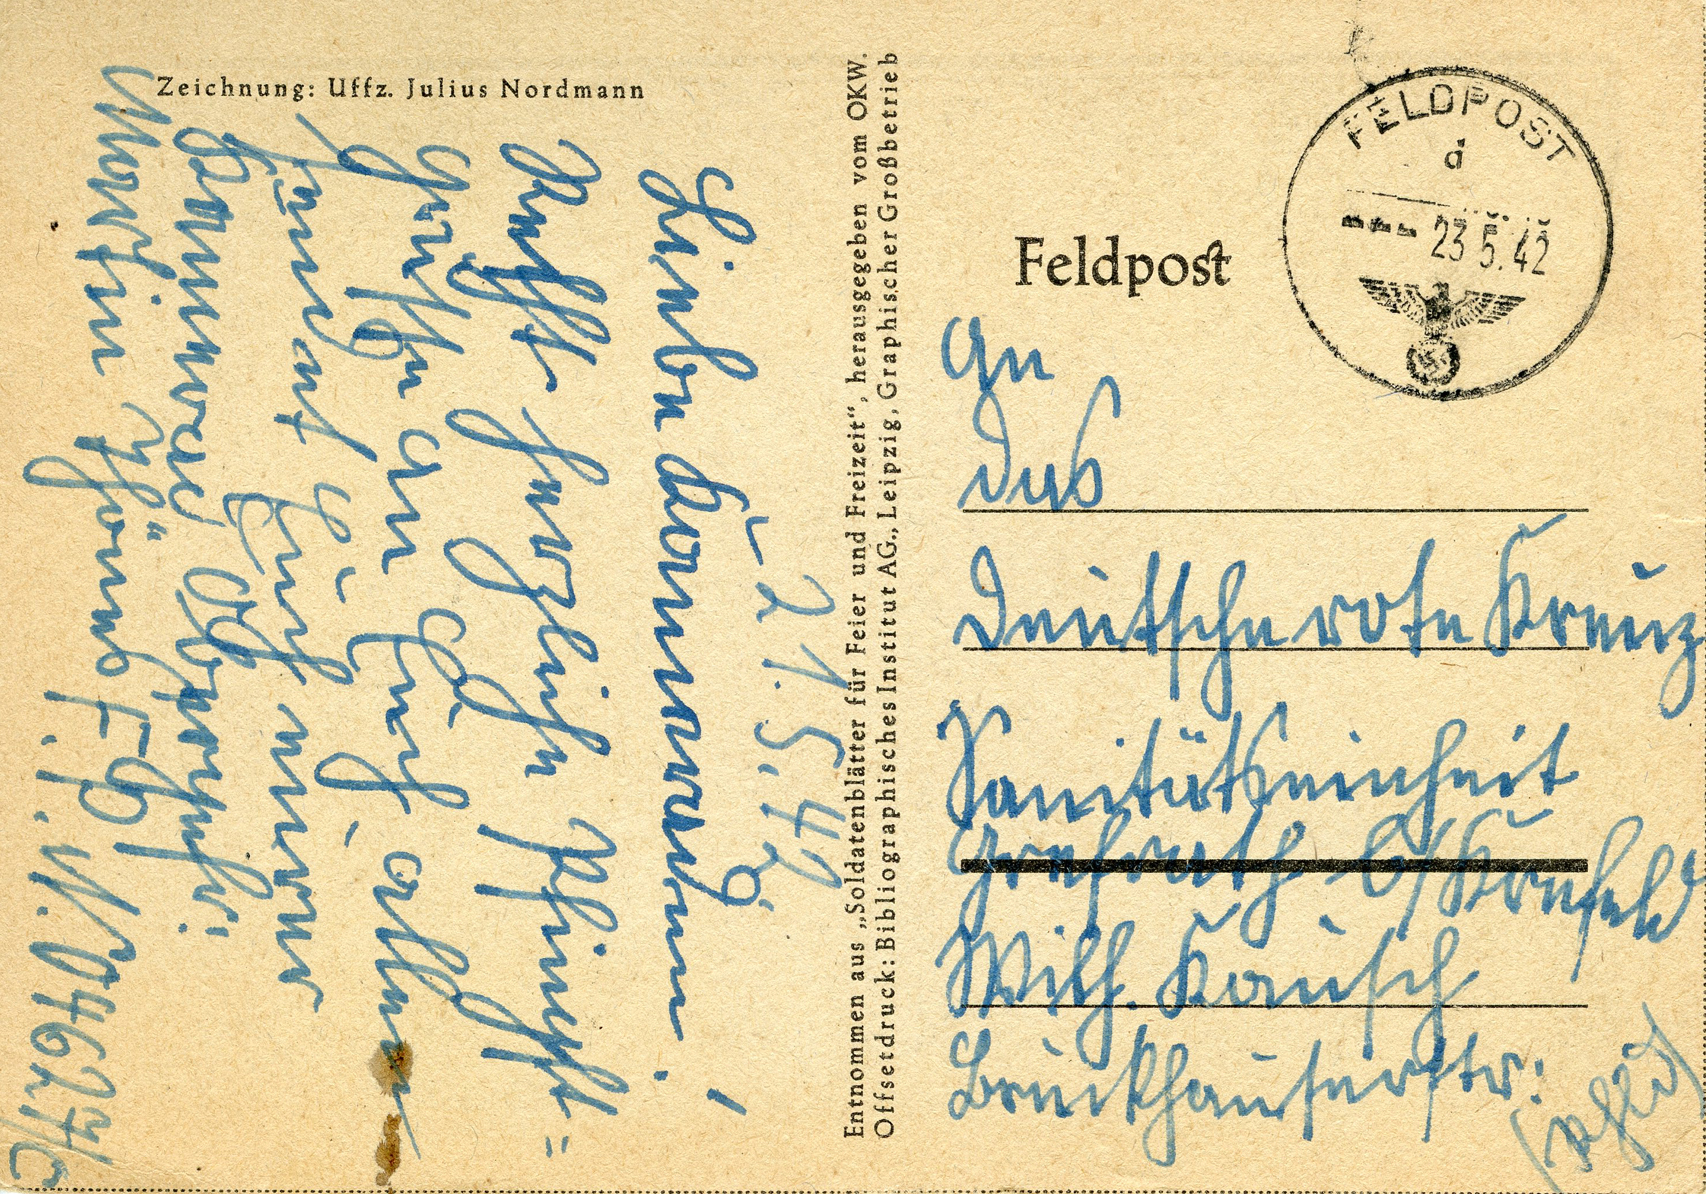 Zeichnung: Uffz. Julius Nordmann
21.5.42
Liebe Kameraden!
Recht herzliche Pfingst=
Grüße an Euch allen
sendet Euch euer
Kamerad
Martin Thönes F.P.N. 04627/C
Entnommen aus „Soldatenblätter für Feier und Freizeit“, herausgegeben vom OKW.
Offsetdruck: Bibliographisches Institut AG., Leipzig, Graphischer Großbetrieb
FELDPOST
d
23.5.42
Feldpost
An
das
Deutsche rote Kreuz
Sanitätseinheit
Grefrath b/Krefeld
Wilh. Kausch
Bruckhauserstr:
(Rhld)